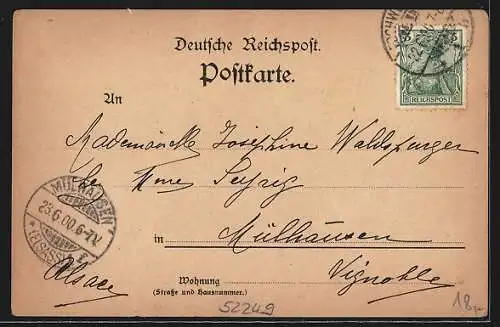 Deutsche Reichspost.
Postkarte.
5 5
REICHSPOST
An
Mademoiselle Josephine Waldsperger
Mme
MÜLHAUSEN
23.6.00.6-7V.
(ELSASS)
in Mülhausen
Alsace
Vignoble
Wohnung
(Straße und Hausnummer.)
52249
18,-